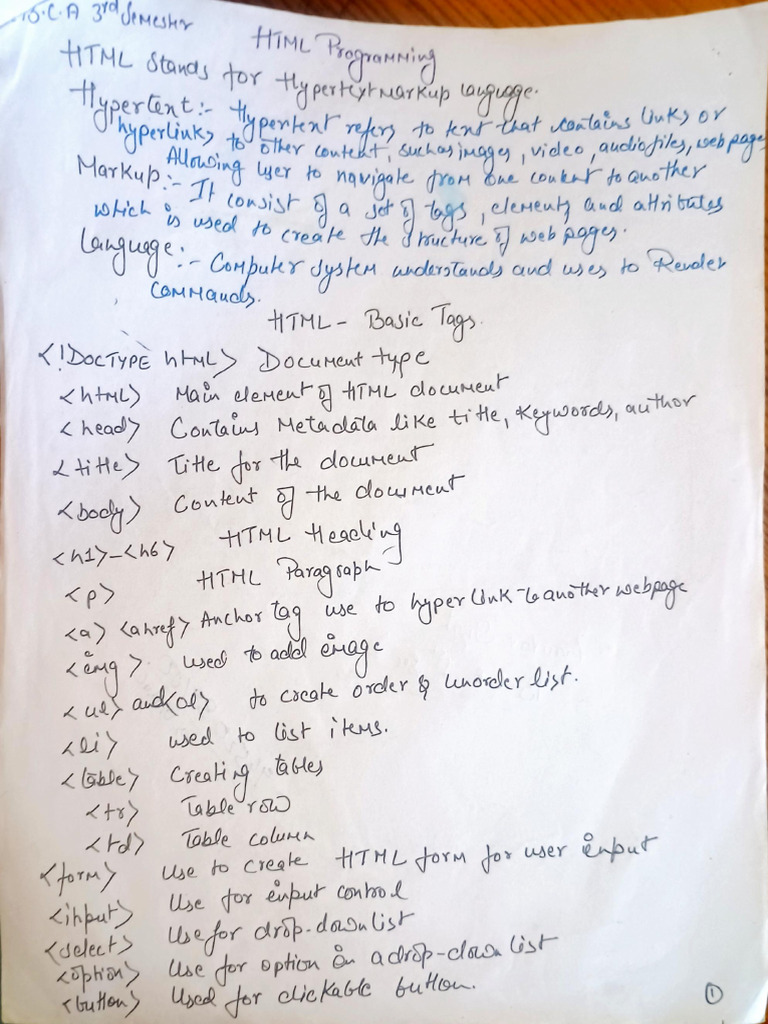 B.C.A 3rd Semester
HTML Programming
HTML Stands for Hypertext Markup Language.
Hypertext:- Hypertext refers to text that contains links or
hyperlinks to other content, such as images, video, audio files, web page
Allowing user to navigate from one content to another
Markup:- It consist of a set of tags, elements and attributes
which is used to create the structure of web pages.
Language:- Computer system understands and uses to Render
Commands.
HTML - Basic Tags.
<!DOCTYPE html> Document type
<html> Main element of HTML document
<head> Contains Metadata like title, Keywords, author
<title> Title for the document
<body> Content of the document
<h1>-<h6> HTML Heading
<p> HTML Paragraph
<a> <ahref> Anchor tag use to hyper link to another webpage
<img> used to add image
<ul> and <ol> to create order & unorder list.
<li> used to list items.
<table> Creating tables
<tr> Table row
<td> Table column
<form> Use to create HTML form for user input
<input> Use for input control
<select> Use for drop-down list
<option> Use for option in a drop-down list
<button> Used for clickable button.
1